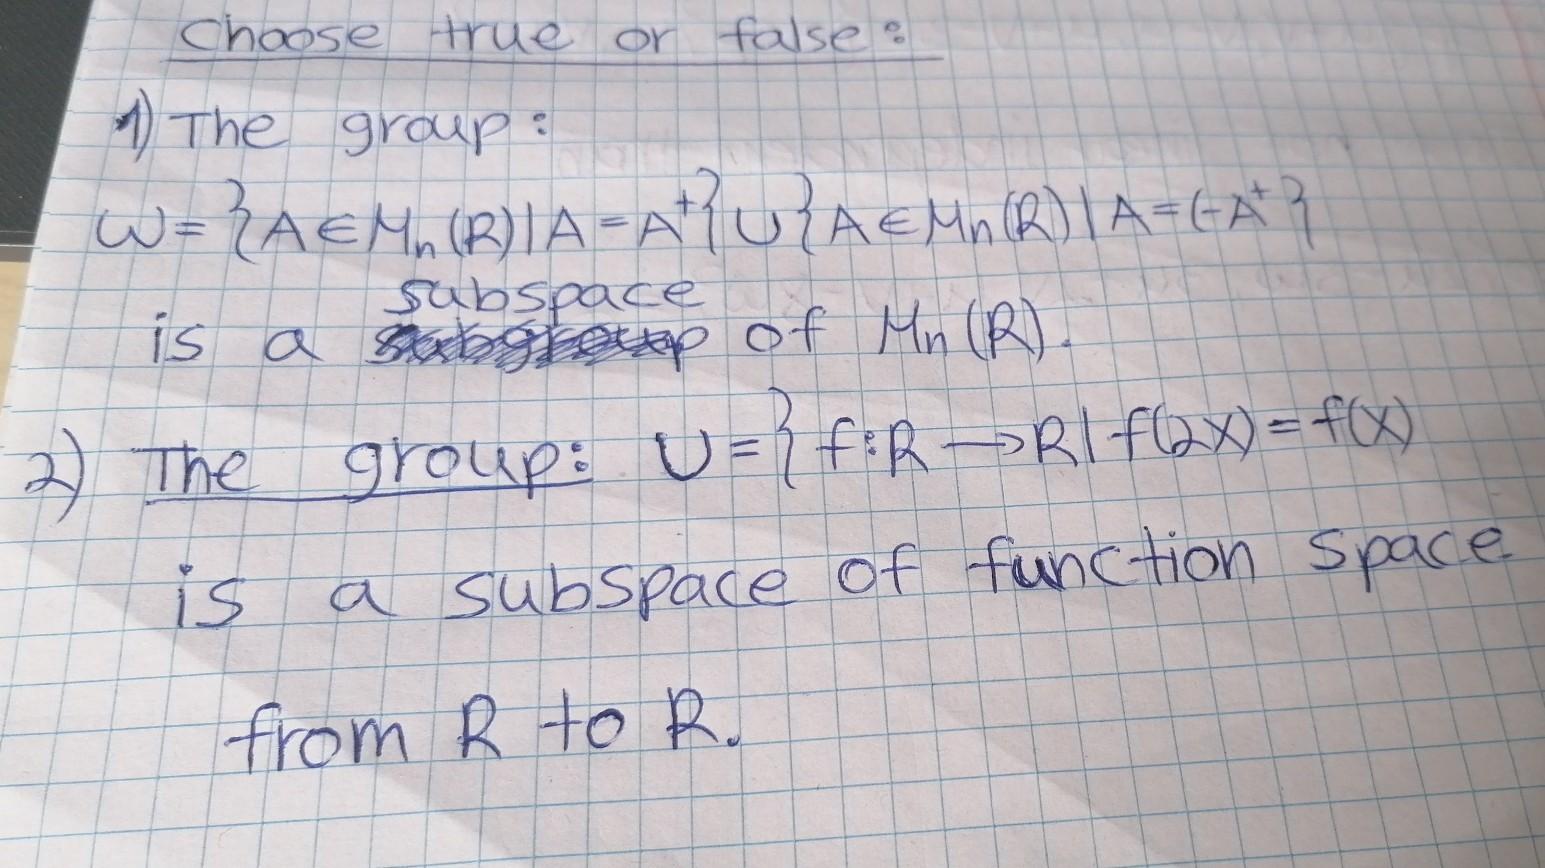 Choose true or false:
1) The group:
W = }A ∈ Mn(R) | A = A^t} ∪ }A ∈ Mn(R) | A = (-A^t}
subspace
is a of Mn(R).
2) The group: U = } f: R → R | f(2x) = f(x)
is a subspace of function space
from R to R.